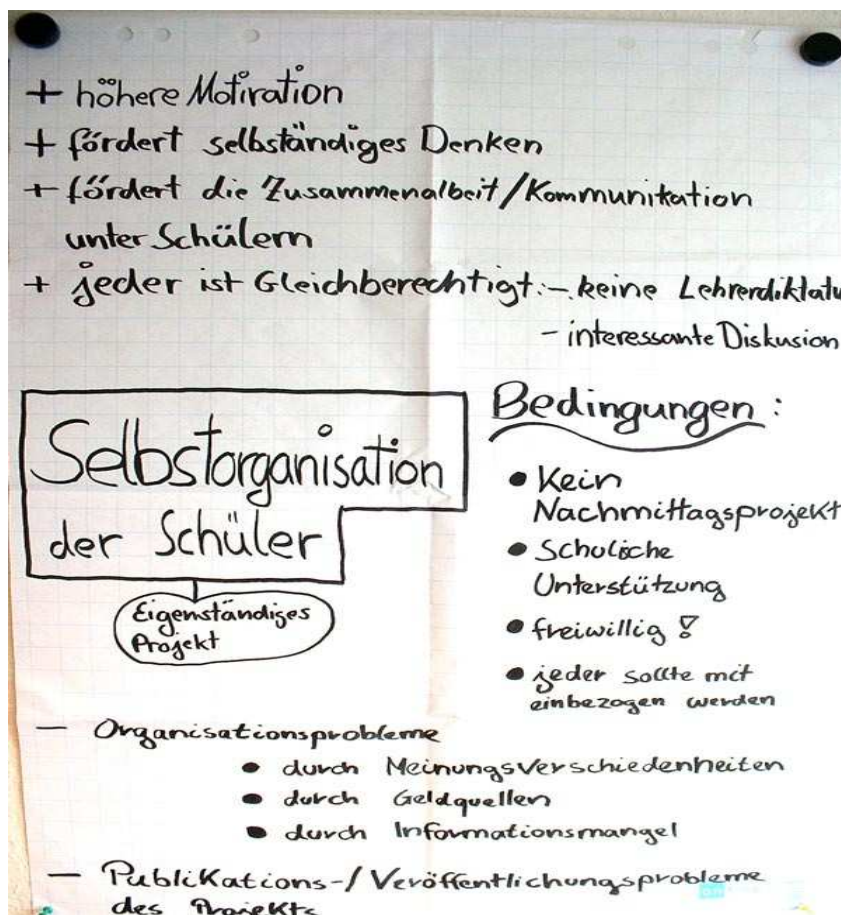 + höhere Motivation
+ fördert selbständiges Denken
+ fördert die Zusammenarbeit/Kommunikation
unter Schülern
+ jeder ist Gleichberechtigt: - keine Lehrerdiktatu
- interessante Diskusion
Selbstorganisation
der Schüler
Eigenständiges
Projekt
Bedingungen:
• Kein
Nachmittagsprojekt
• Schulische
Unterstützung
• freiwillig!
• jeder sollte mit
einbezogen werden
- Organisationsprobleme
• durch Meinungsverschiedenheiten
• durch Geldquellen
• durch Informationsmangel
- Publikations-/Veröffentlichungsprobleme
des Projekts